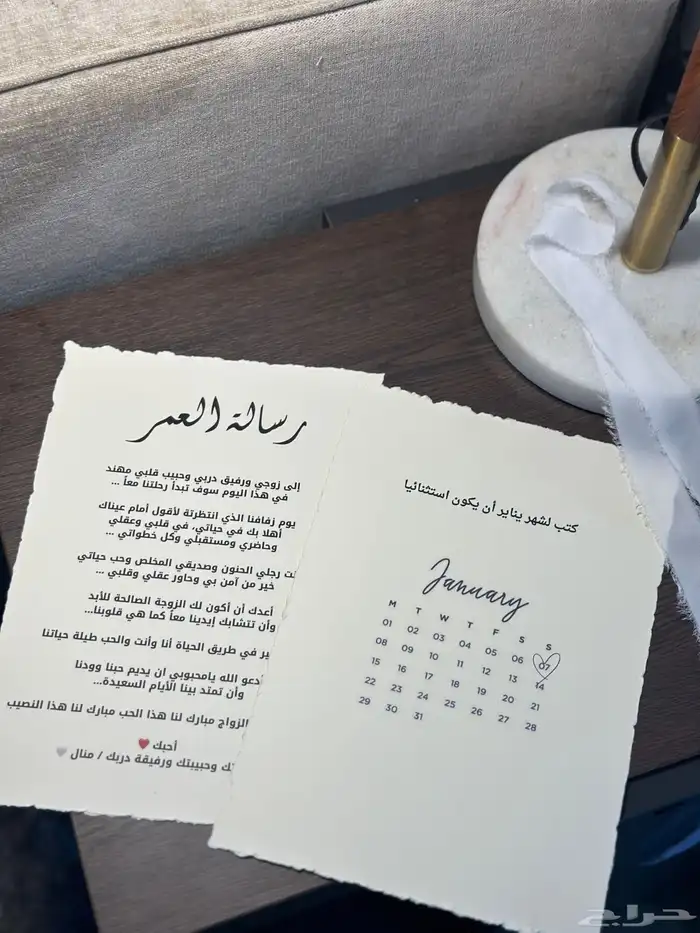 رسالة العمر
إلى زوجي ورفيق دربي وحبيب قلبي مهند
في هذا اليوم سوف تبدأ رحلتنا معاً ...
يوم زفافنا الذي انتظرتة لأقول أمام عيناك
أهلا بك في حياتي، في قلبي وعقلي
وحاضري ومستقبلي وكل خطواتي ...
رجلي الحنون وصديقي المخلص وحب حياتي
خير من آمن بي وحاور عقلي وقلبي ...
أعدك أن أكون لك الزوجة الصالحة للأبد
وأن تتشابك إيدينا معاً كما هي قلوبنا...
في طريق الحياة أنا وأنت والحب طيلة حياتنا
أدعو الله يامحبوبي ان يديم حبنا وودنا
وأن تمتد بينا الأيام السعيدة...
الزواج مبارك لنا هذا الحب مبارك لنا هذا النصيب
أحبك ❤
وحبيبتك ورفيقة دربك / منال 🤍
كتب لشهر يناير أن يكون استثنائيا
January
M T W T F S S
01 02 03 04 05 06 07
08 09 10 11 12 13 14
15 16 17 18 19 20 21
22 23 24 25 26 27 28
29 30 31
حراج